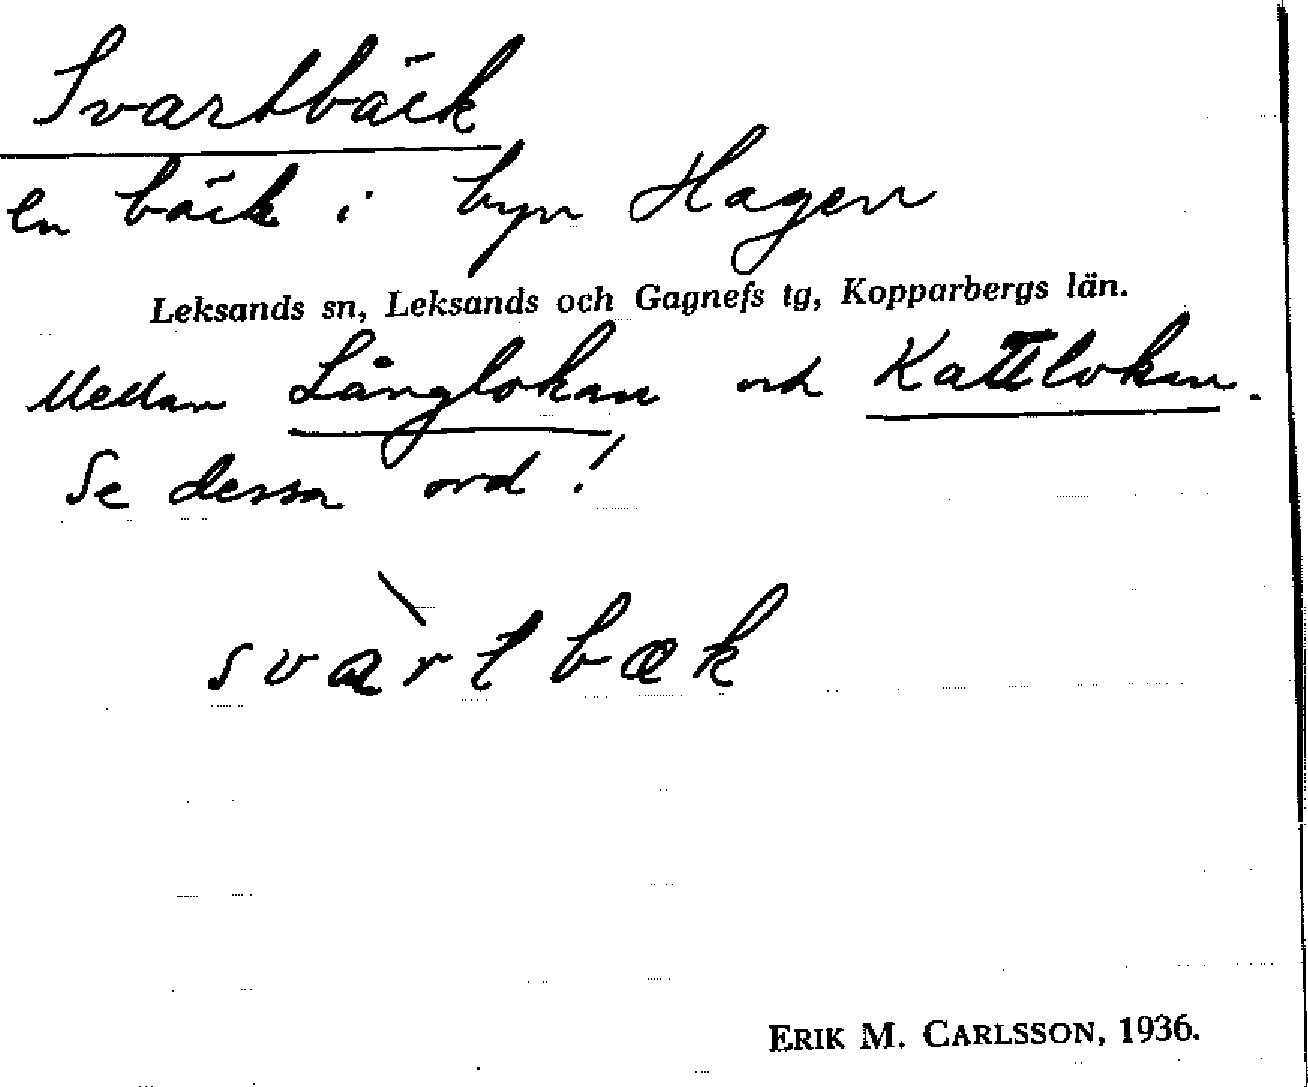 Svartbäck
en bäck i byn Hagen
Leksands sn, Leksands och Gagnefs tg, Kopparbergs län.
Mellan Långlokan och Kattlokan.
Se dessa ord!
svàrtbæk
ERIK M. CARLSSON, 1936.